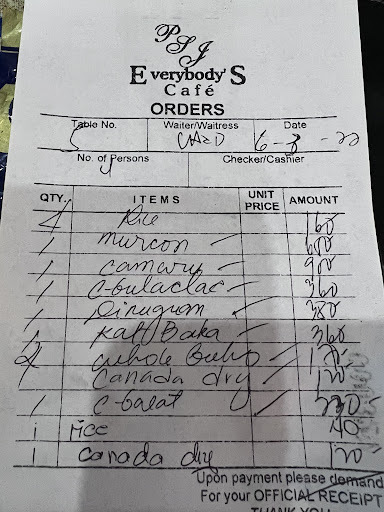 PSJ
Everybody'S
Café
ORDERS
Table No. Waiter/Waitress Date
6-3-22
No. of Persons Checker/Cashier
QTY. ITEMS UNIT PRICE AMOUNT
4 Rice 160
1 murcon 600
1 camaru 900
1 c-bulaclac 360
1 Dinuguan 380
1 Kalf/Baka 360
2 whole buko
1 Canada dry 120
1 c-balat
1 rice 40
1 Canada dry 120
Upon payment please demand
For your OFFICIAL RECEIPT
THANK YOU